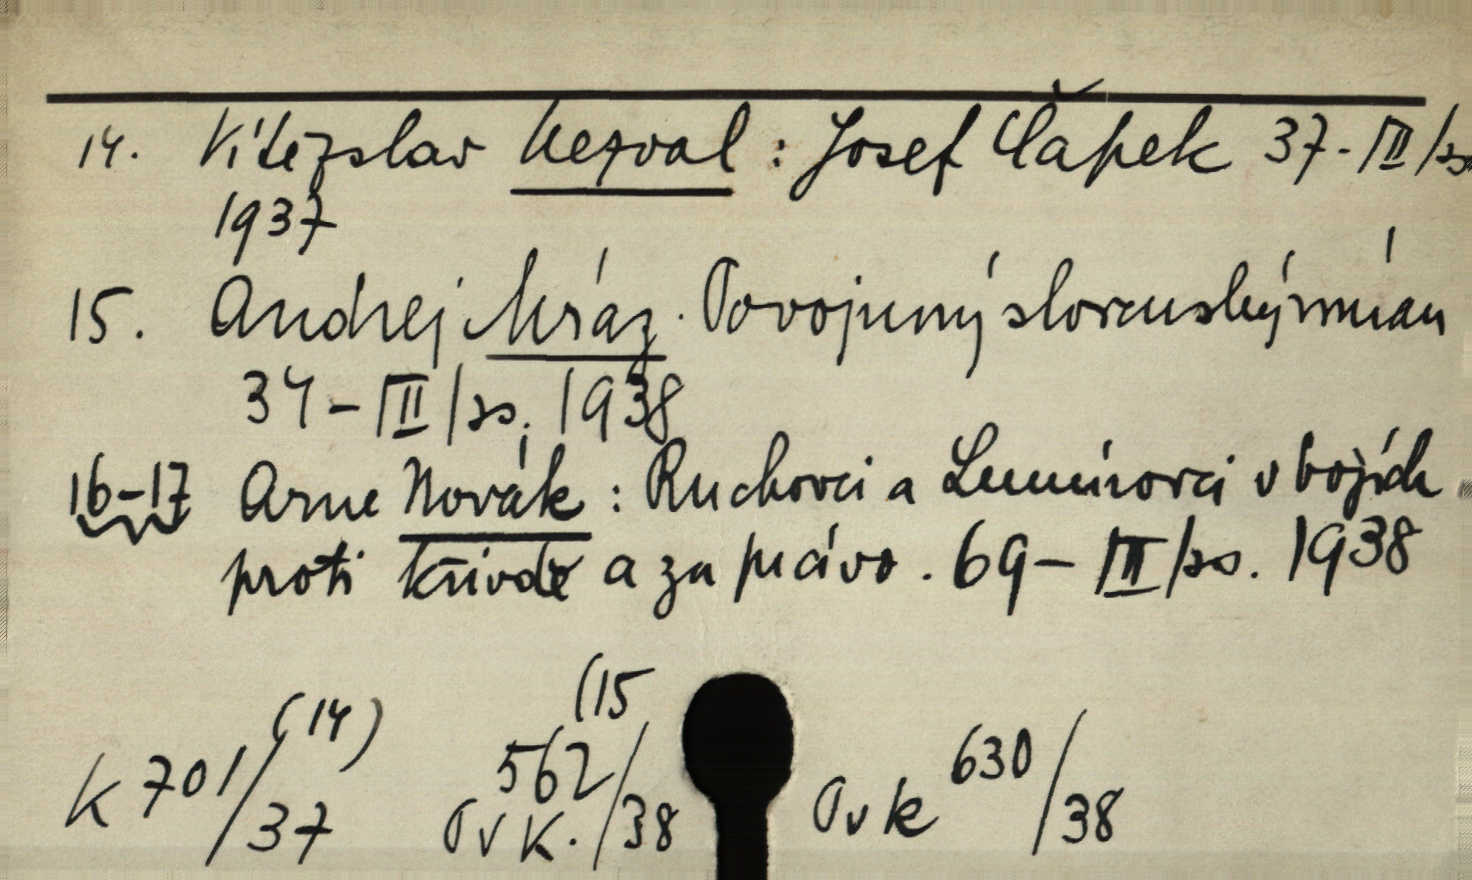 14. Vítězslav Nezval : Josef Čapek 37 - III / zs
1937
15. Andrej Mráz. Povojnný slovenský román
34 - III / zs. 1938
16-17 Arne Novák : Ruchovci a Lumírovci v bojích
proti křivdě a za právo. 69 - III / zs. 1938
(14) (15
K 701/37 Ov K. 562/38 Ov k 630/38